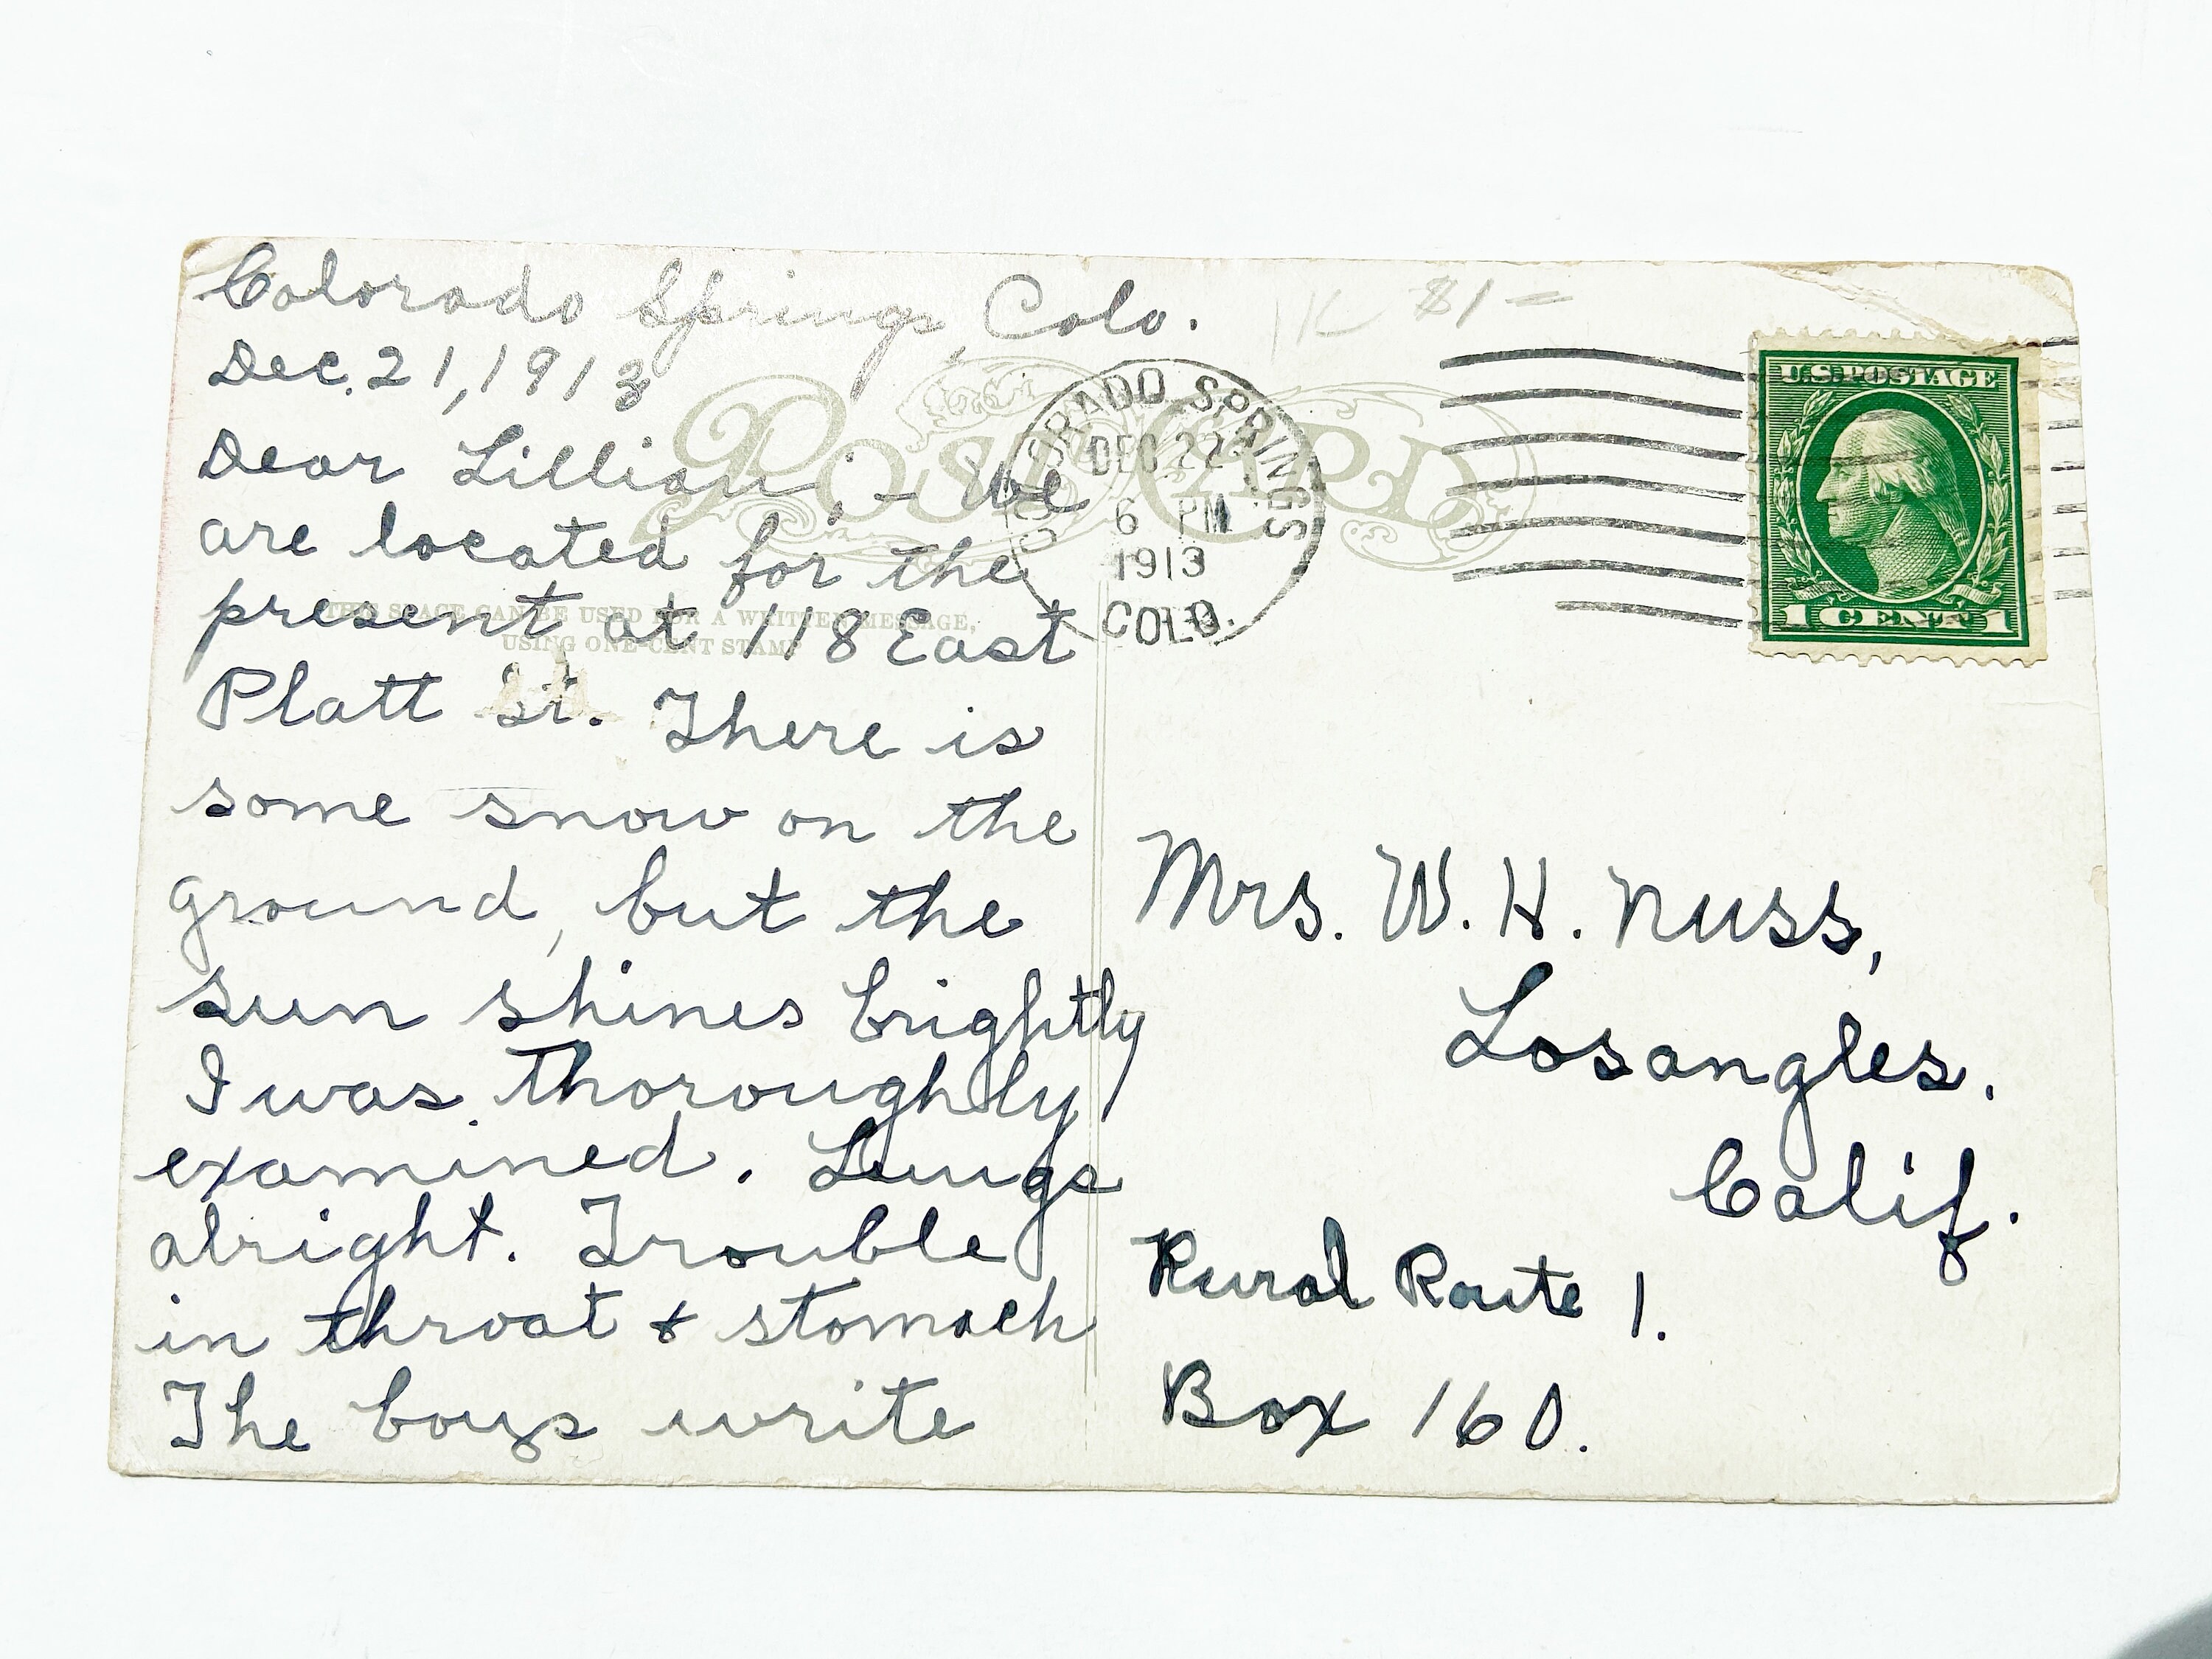 Colorado Springs, Colo.
Dec. 21, 1913
Dear Lillian; - We
are located for the
present at 118 East
Platt St. There is
some snow on the
ground, but the
sun shines brightly
I was thoroughly
examined. Lungs
alright. Trouble
in throat & stomach
The boys write
POST CARD
THIS SPACE CAN BE USED FOR A WRITTEN MESSAGE,
USING ONE-CENT STAMP
COLORADO SPRINGS
DEC 22
6 PM
1913
COLO.
U.S. POSTAGE
1 CENT 1
Mrs. W. H. Nuss,
Losangles.
Calif.
Rural Route 1.
Box 160.